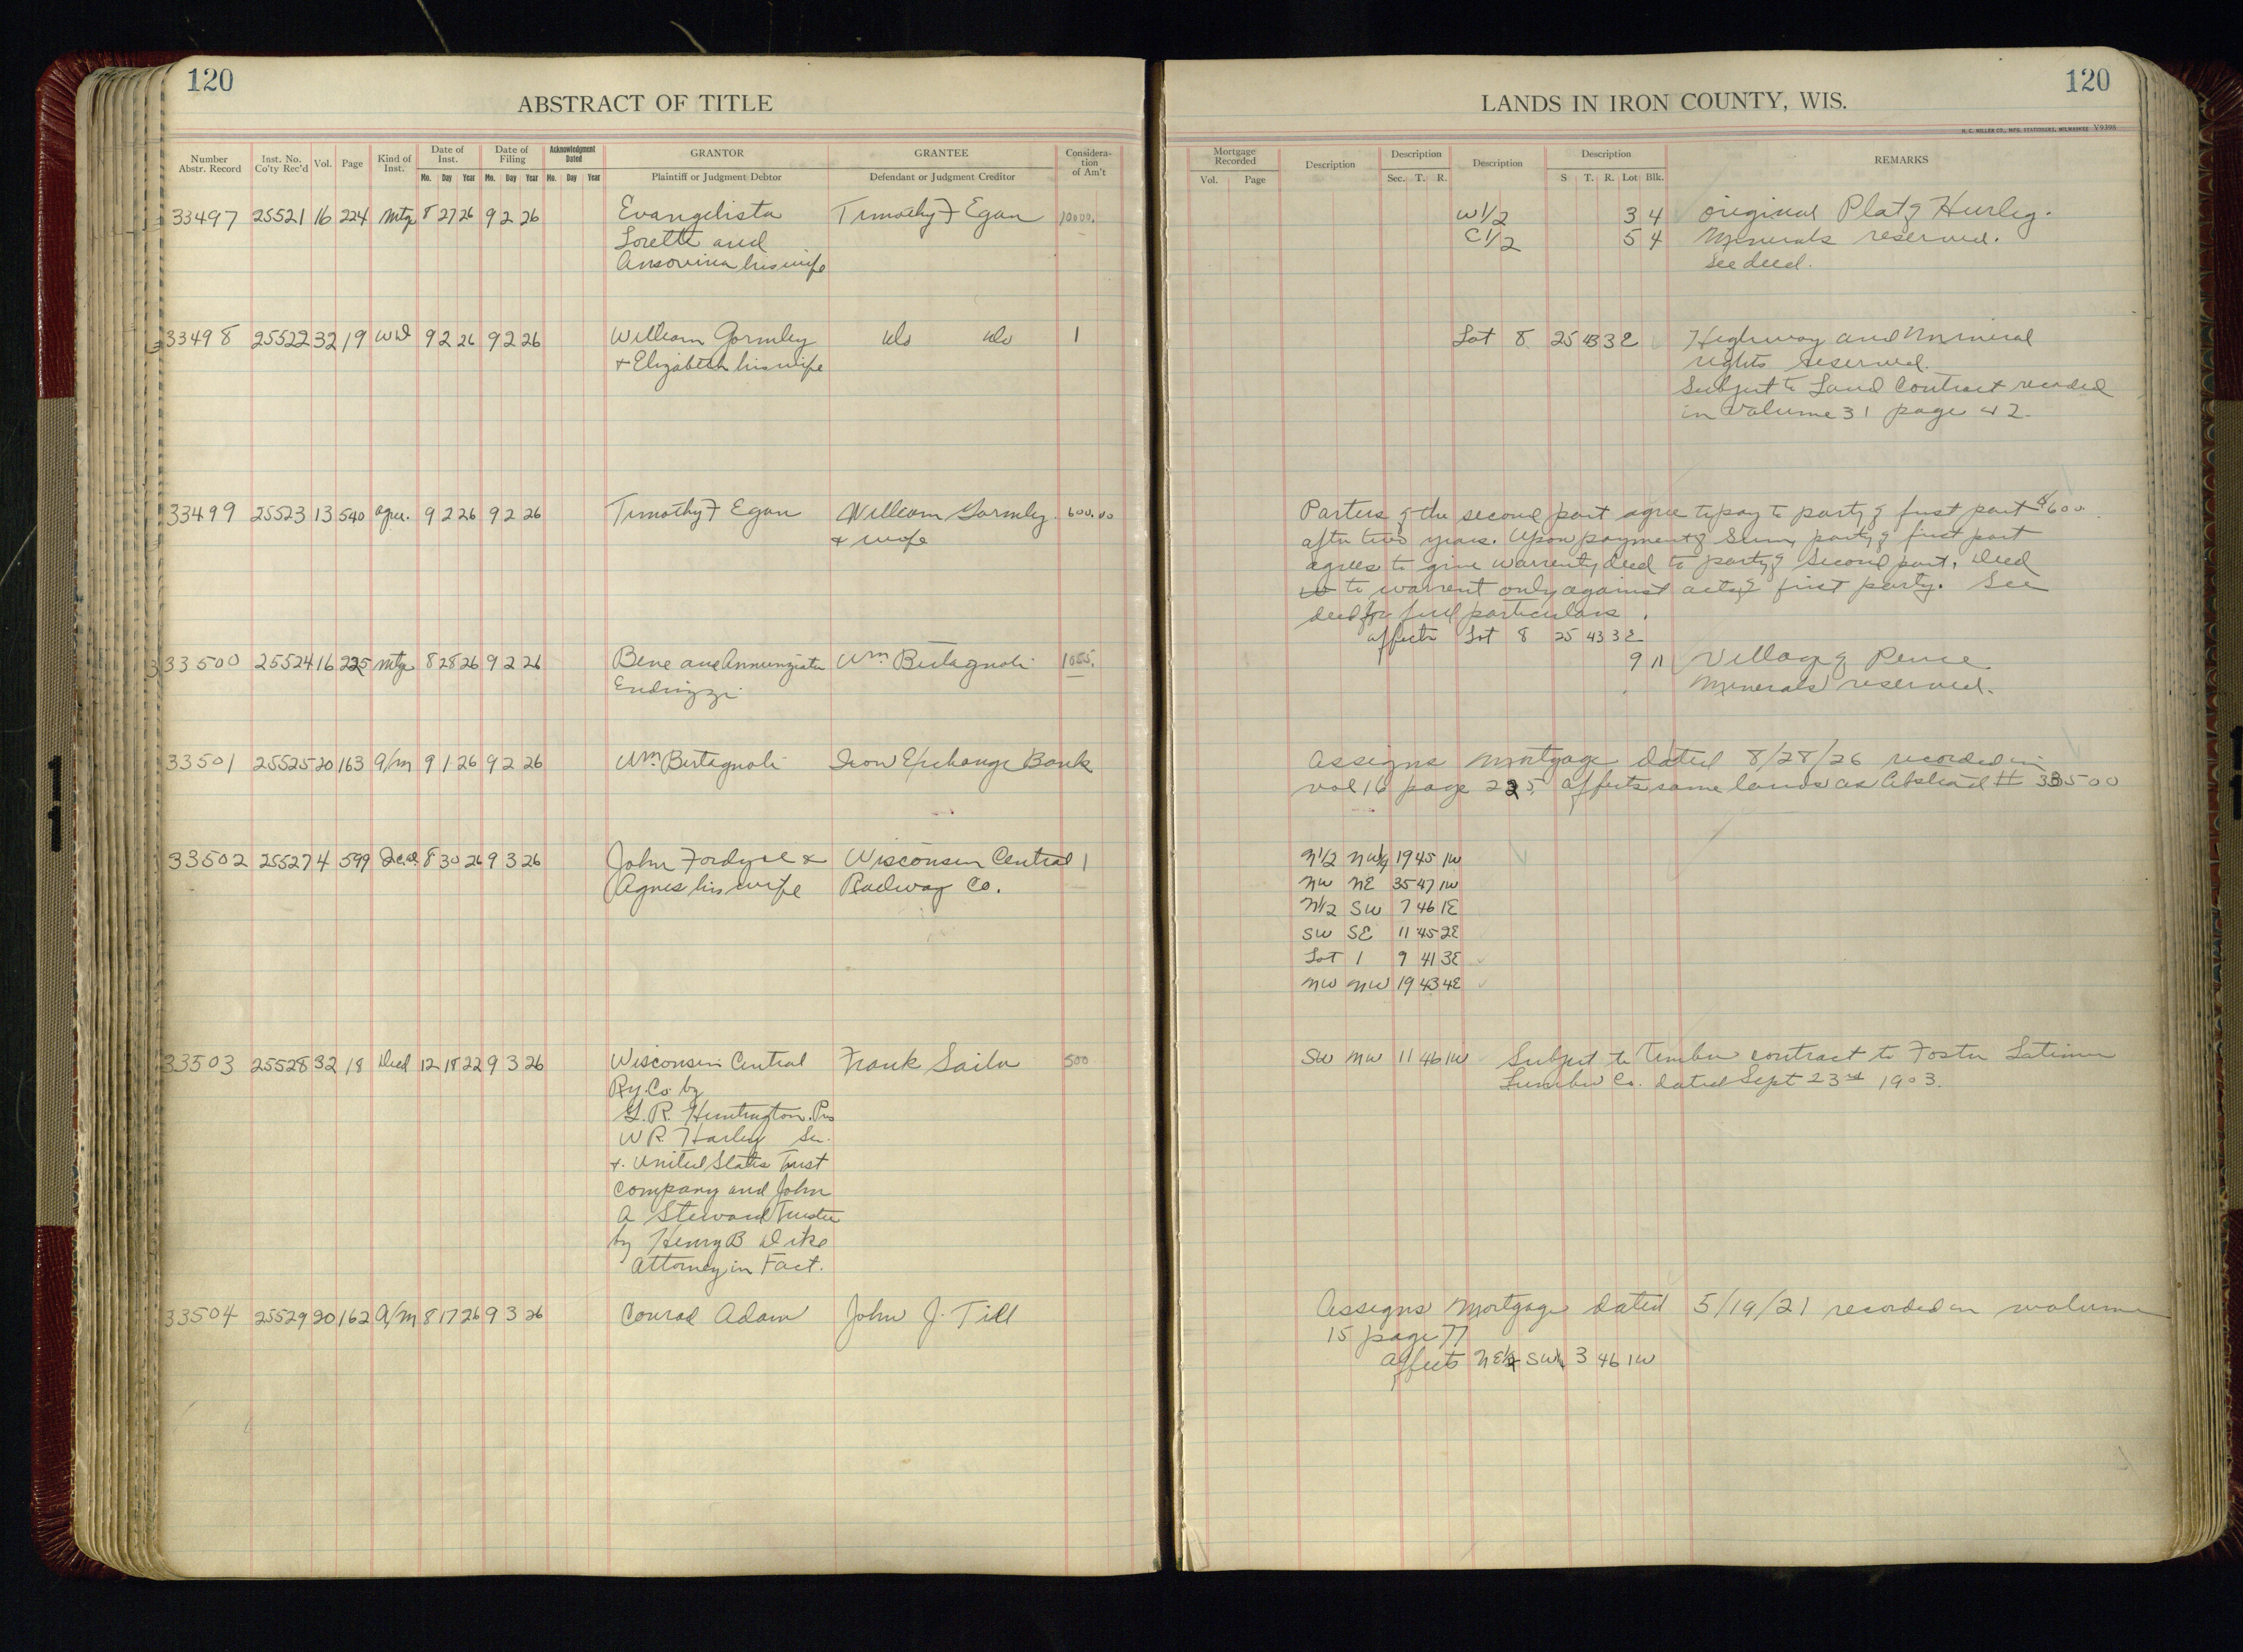 120
ABSTRACT OF TITLE
Number Abstr. Record Inst. No. Co'ty Rec'd Vol. Page Kind of Inst. Date of Inst. Mo. Day Year Date of Filing Mo. Day Year Acknowledgment Dated Mo. Day Year GRANTOR Plaintiff or Judgment Debtor GRANTEE Defendant or Judgment Creditor Considera-tion of Am't
33497 25521 16 224 Mtg 8 27 26 9 2 26 Evangelista Timothy F Egan 10000.
Lorette and
Ansovina his wife
33498 25522 32 19 WD 9 2 26 9 2 26 William Gormley do do 1
+ Elizabeth his wife
33499 25523 13 540 agree. 9 2 26 9 2 26 Timothy F Egan William Gormley 600.00
+ wife
33500 25524 16 225 Mtg 8 28 26 9 2 26 Bene and Annunziata Wm Bertagnoli 1055.
Endrizzi
33501 25525 20 163 a/m 9 1 26 9 2 26 Wm Bertagnoli Iron Exchange Bank
33502 25527 4 599 8 30 26 9 3 26 John Fordyce & Wisconsin Central 1
Agnes his wife Railway Co.
33503 25528 32 18 Deed 12 18 22 9 3 26 Wisconsin Central Frank Saila 500
Ry. Co. by
G. R. Huntington. Pres
W R. Harley Sec.
+ United States Trust
Company and John
A Steward Trustee
by Henry B Dike
Attorney in Fact.
33504 25529 20 162 a/m 8 17 26 9 3 26 Conrad Adam John J. Till
120
LANDS IN IRON COUNTY, WIS.
H. C. MILLER CO., MFG. STATIONERS, MILWAUKEE V9396
Mortgage Recorded Vol. Page Description Description Sec. T. R. Description Description S T. R. Lot Blk. REMARKS
W1/2 3 4 Original Plat of Hurley.
E1/2 5 4 Minerals reserved.
See deed.
Lot 8 25 43 3E Highway and Mineral
rights reserved.
Subject to Land Contract recorded
in Volume 31 page 42.
Parties of the second part agree to pay to party of first part $600
after two years. Upon payment of Sum, party of first part
agrees to give warrenty deed to party of second part. Deed
to warrent only against acts of first party. See
deed for full particulars.
affects Lot 8 25 43 3E
9 11 Village of Pence
Minerals reserved.
Assigns Mortgage dated 8/28/26 recorded in
vol 16 page 225. affects same lands as Abstract # 33500
N1/2 NW1/4 19 45 1W
NW NE 35 47 1W
N1/2 SW 7 46 1E
SW SE 11 45 2E
Lot 1 9 41 3E
NW NW 19 43 4E
SW NW 11 46 1W Subject to timber contract to Foster Latimer
Lumber Co. dated Sept 23rd 1903.
Assigns Mortgage dated 5/19/21 recorded in volume
15 page 77
affects NE1/4 SW1/4 3 46 1W